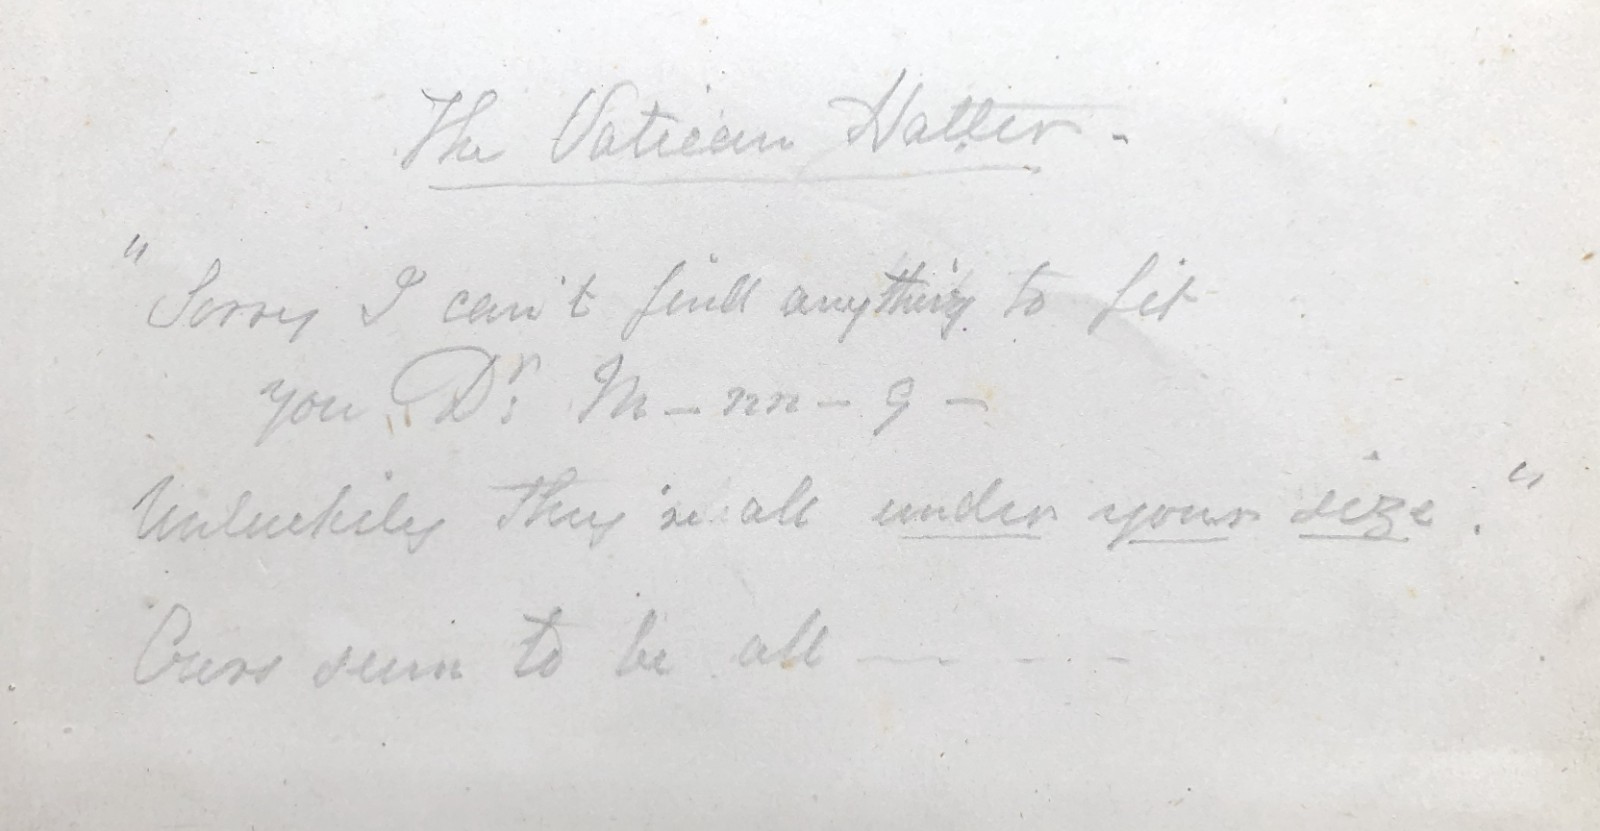 The Vatican Hatter -
"Sorry I can't find anything to fit
you Dr. M - nn - g -
Unluckily They're all under your size."
Ours seem to be all — - - -